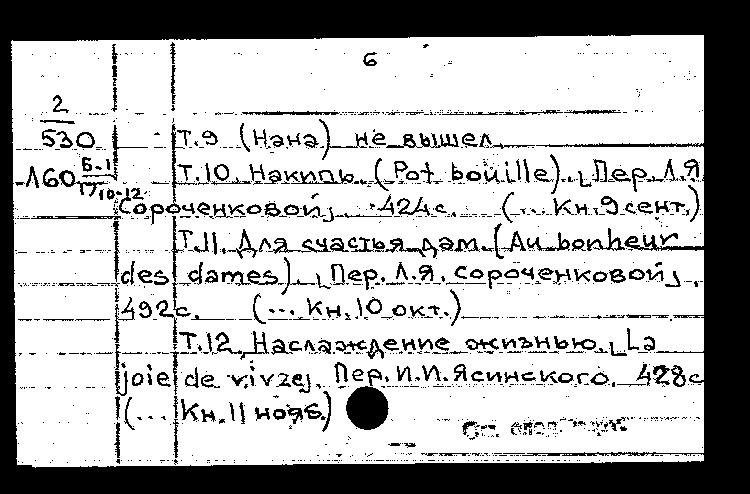 6
2
530
Т.9 (Нана) не вышел.
160 Б-1
17/10-12
Т.10. Накипь. (Pot bouille). [Пер. Л.Я
Сороченковой]. 424с. (... Кн.9 сент.)
Т.11. Для счастья дам. (Au bonheur
des dames). [Пер. Л.Я. Сороченковой],
492с. (... Кн.10 окт.)
Т.12. Наслаждение жизнью. [La
joie de vivre]. Пер. И.И. Ясинского. 428с
(... Кн.11 нояб.)